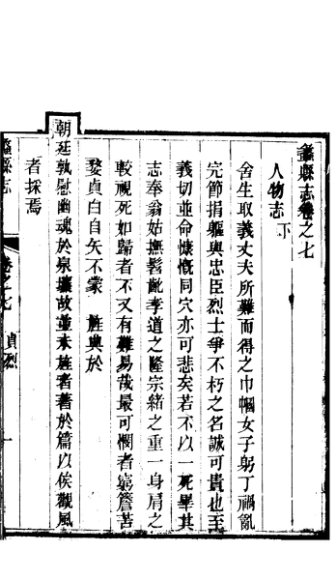 蠡縣志卷之七
人物志下
舍生取義丈夫所難而得之巾幗女子躬丁禍亂
完節捐軀與忠臣烈士爭不朽之名誠可貴也至
義切並命慷慨同穴亦可悲矣若不以一死畢其
志奉翁姑撫髫齔孝道之隆宗緒之重一身肩之
較視死如歸者不又有難易哉最可憫者窮簷苦
婺貞白自矢不蒙 旌典於
朝廷孰慰幽魂於泉壤故並未旌者著於篇以俟觀風
者採焉
蠡縣志 卷之七 貞烈 一